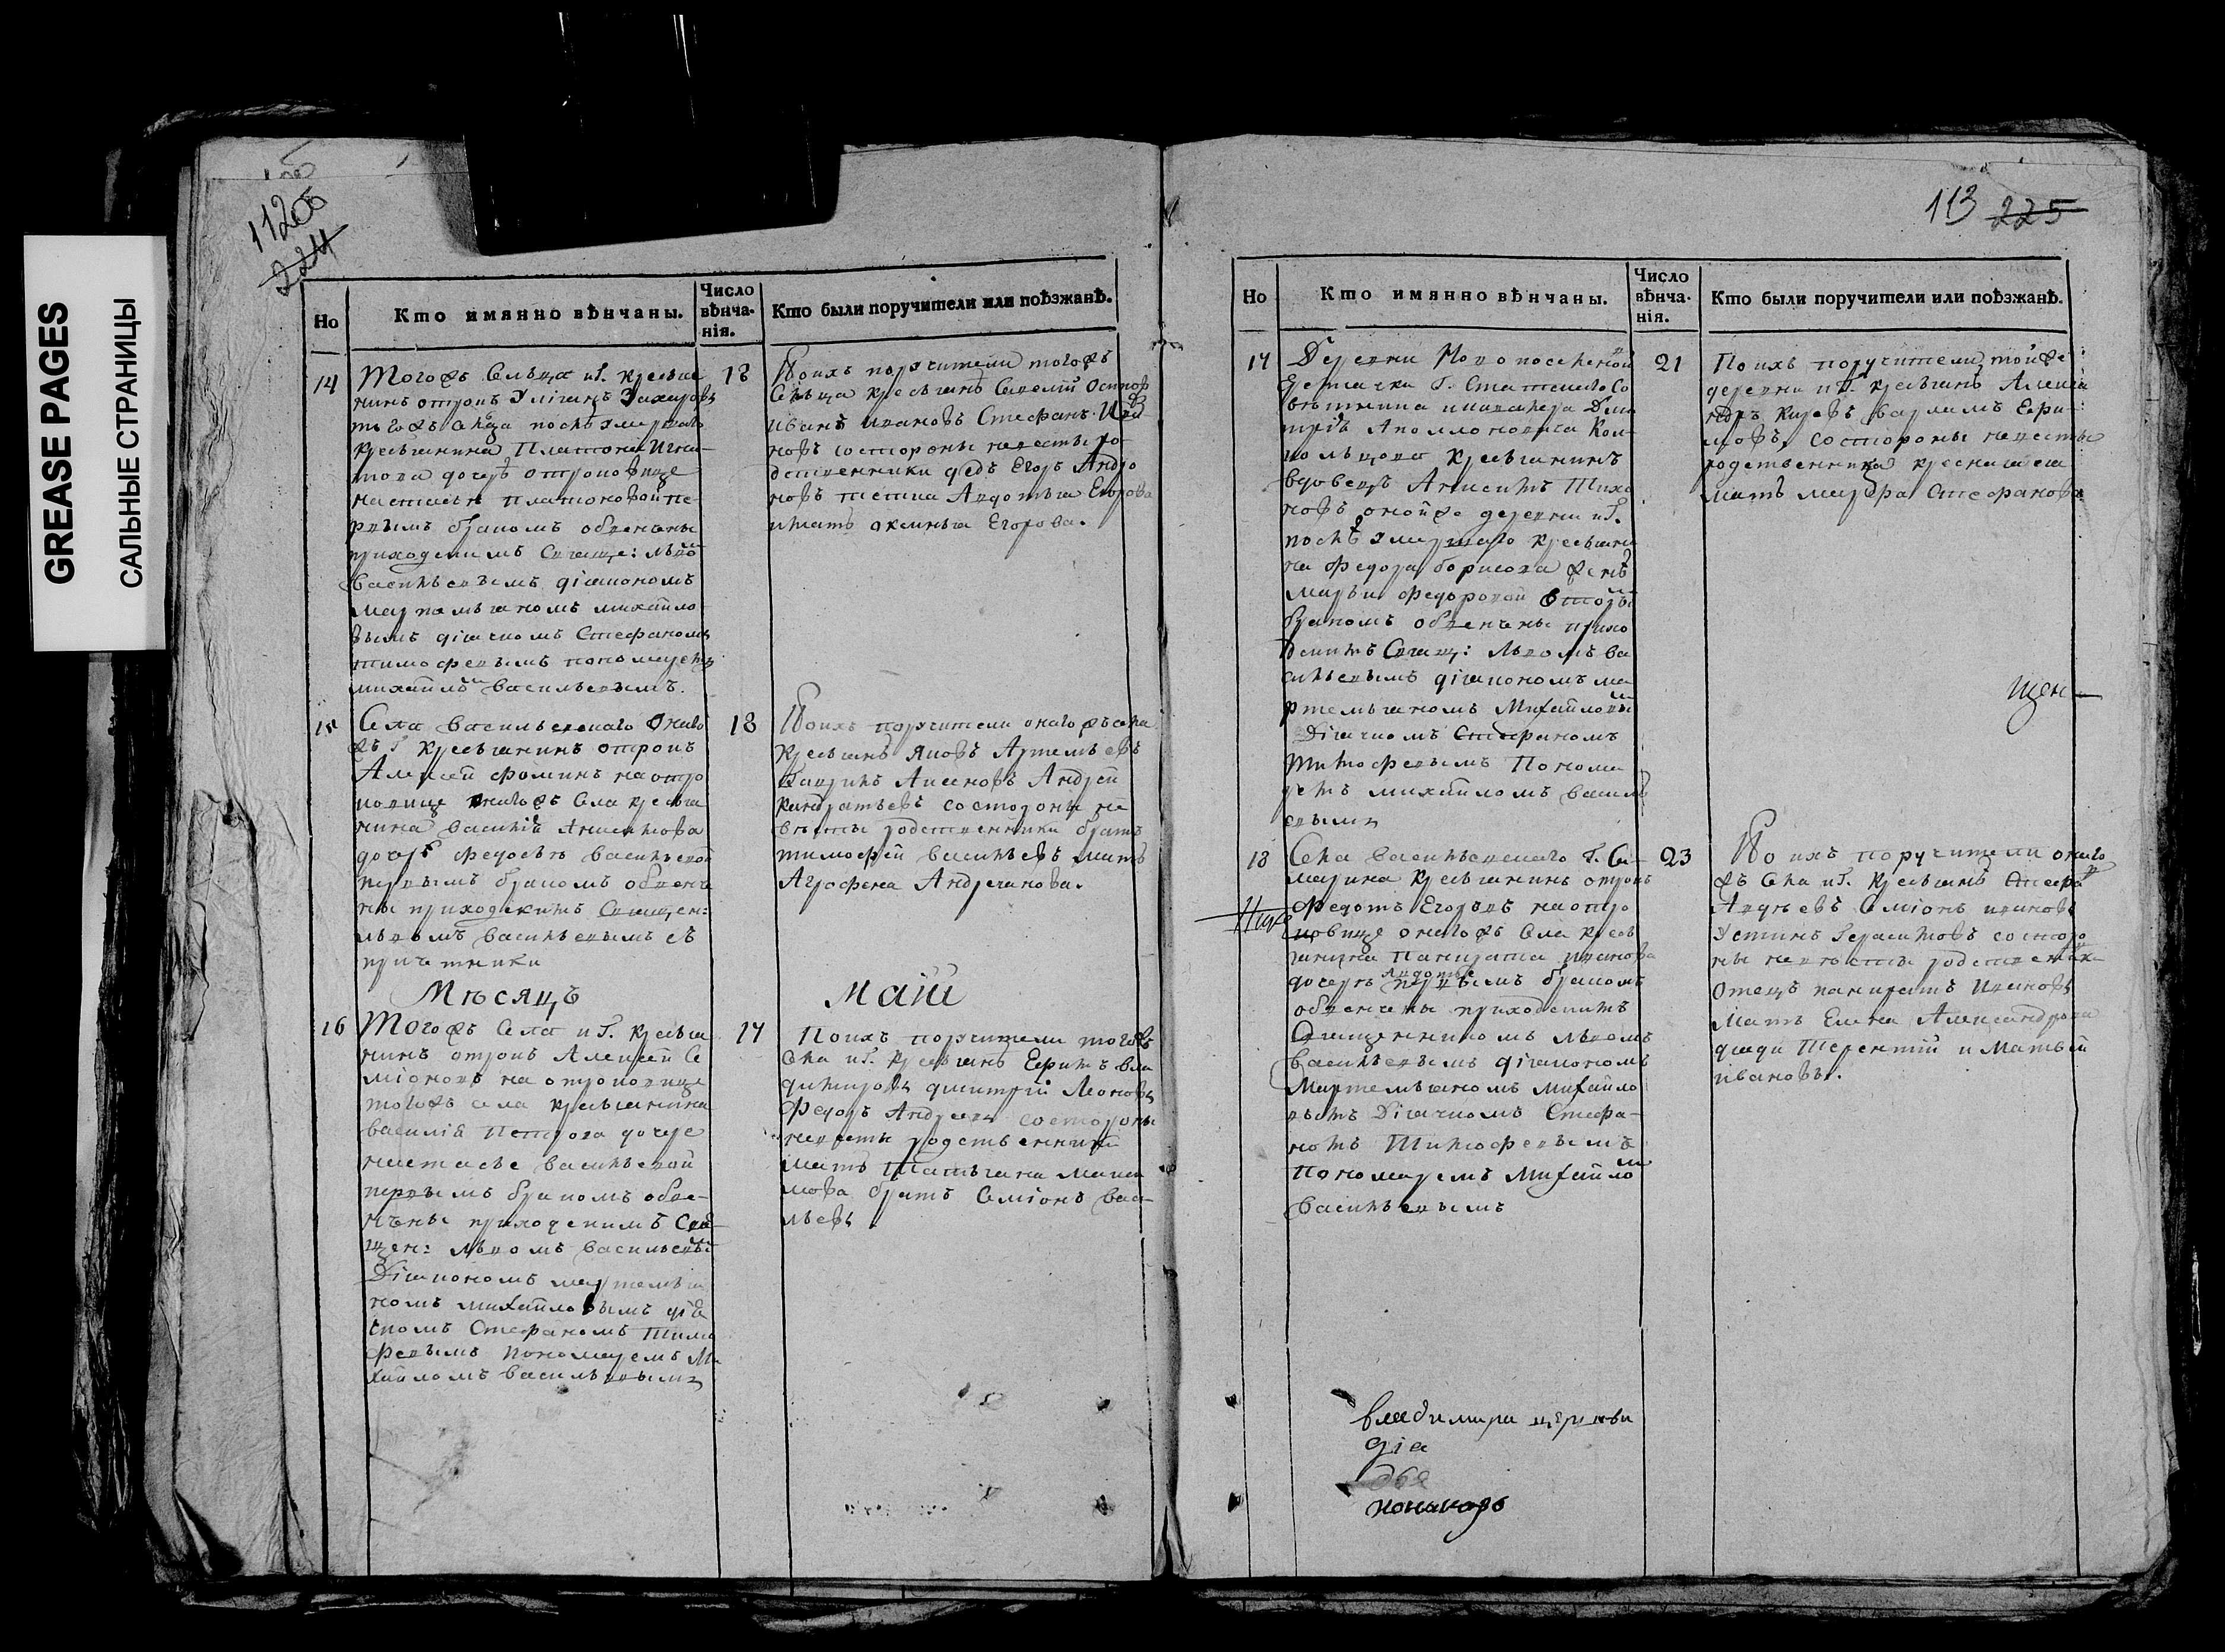 GREASE PAGES
САЛЬНЫЕ СТРАНИЦЫ
112об
224
Но
Кто имянно вѣнчаны.
Число вѣнча-
нія.
Кто были поручители или поѣзжанѣ.
14
Тогожъ Сельца и Г. кресьяе
нинъ отрокъ Захаровъ
тогожъ сельца послѣ умершаго
кресьянина Платона Игна-
това дочерѣ отроковице
настасье платоновой пе-
рвымъ бракомъ обвенчаны
приходскимъ Свяще: львомъ
Васильевымъ діакономъ
мартемьяномъ михайло
вымъ діячкомъ Стефаномъ
тимофеевымъ пономаремъ
михайломъ Васильевымъ.
18
По ихъ поручители тогожъ
Сельца кресьянъ Осипов
Иванъ Ивановъ Стефанъ Ива-
новъ состороны невесты ро-
дственники дедъ Егоръ Андро
новъ тетка Авдотья Егорова
и мать аксинья Егорова.
15
Села Васильевскаго Онаго
жъ Г кресьянинъ отрокъ
Алексей фоминъ на отро
ковице онагожъ Села кресья
нина Василія
дочерѣ федосьѣ Васильевой
первымъ бракомъ обвенча
ны приходскимъ Священ:
львомъ Васильевымъ съ
причетники
18
По ихъ поручители онагожъ села
кресьянъ Яковъ Артемьевъ
Андрей
Кандратьевъ состороны не
весты родственники братъ
тимофей Васильевъ мать
Агрофена Андреянова.
Мѣсяцъ
маій
16
Тогожъ Села и Г. кресья
нинъ отрокъ Алексей Се
міоновъ на отроковице
тогожъ села кресьянина
василія Петрова дочере
настасье васильевой
первымъ бракомъ обве-
нчены приходскимъ Свя-
щен: львомъ Васильевым
Діакономъ мартемья
номъ михайловымъ діа
чкомъ Стефаномъ Тимо
феевымъ пономаремъ Ми
хайломъ Васильевымъ
17
По ихъ поручители тогожъ
Села и Г. кресьянъ Ефимъ вла
димировъ дмитрій Леоновъ
федоръ Андреевъ состороны
невесты родственники
мать Татьяна макси
мова братъ Семіонъ Васи-
льевъ
113 225
Но
Кто имянно вѣнчаны.
Число вѣнча-
нія.
Кто были поручители или поѣзжанѣ.
17
Деревни Новопоселеной
Г. Статскаго Со
вѣтника и кавалера Дми
трія Аполлоновича Кол-
кольцова кресьянинъ
вдовецъ Тихо
новъ оной же деревни и Г.
послѣ умершаго кресьяни
на федора борисова женѣ
марьи федоровой вторымъ
бракомъ обвенчены прихо
дскимъ Свящ: львомъ Ва
сильевымъ діакономъ ма
ртемьяномъ Михайловым
Діячкомъ Стефаномъ
Тимофеевымъ Понома
ремъ михайломъ Василь
евымъ
21
По ихъ поручители тойже
деревни и Г. кресьянъ Алекса
ндръ варламъ Ефи-
мовъ, состороны невесты
родственники
мать Стефанова
щен
18
Села Васильевскаго Г. Са-
марина кресьянинъ отрокъ
федотъ Егоровъ на отро
ковице онагожъ Села кресь
янина Панкрата иванова
дочерѣ Авдотье первымъ бракомъ
обвенчены приходскимъ
Священникомъ львомъ
Васильевымъ діакономъ
Мартемьяномъ Михайло
вымъ Діячкомъ Стефа-
номъ Тимофеевымъ
Пономаремъ Михайломъ
Васильевымъ
23
По ихъ поручители онаго
жъ Села и Г. кресьянъ Стефа
Авдеевъ Семіонъ ивановъ
Устинъ Герасимовъ состоро
ны невесты родственики
Отецъ панкратъ Ивановъ
Мать Елена Александрова
дяди Терентій и Матвей
ивановы.
владимира церкви
діа